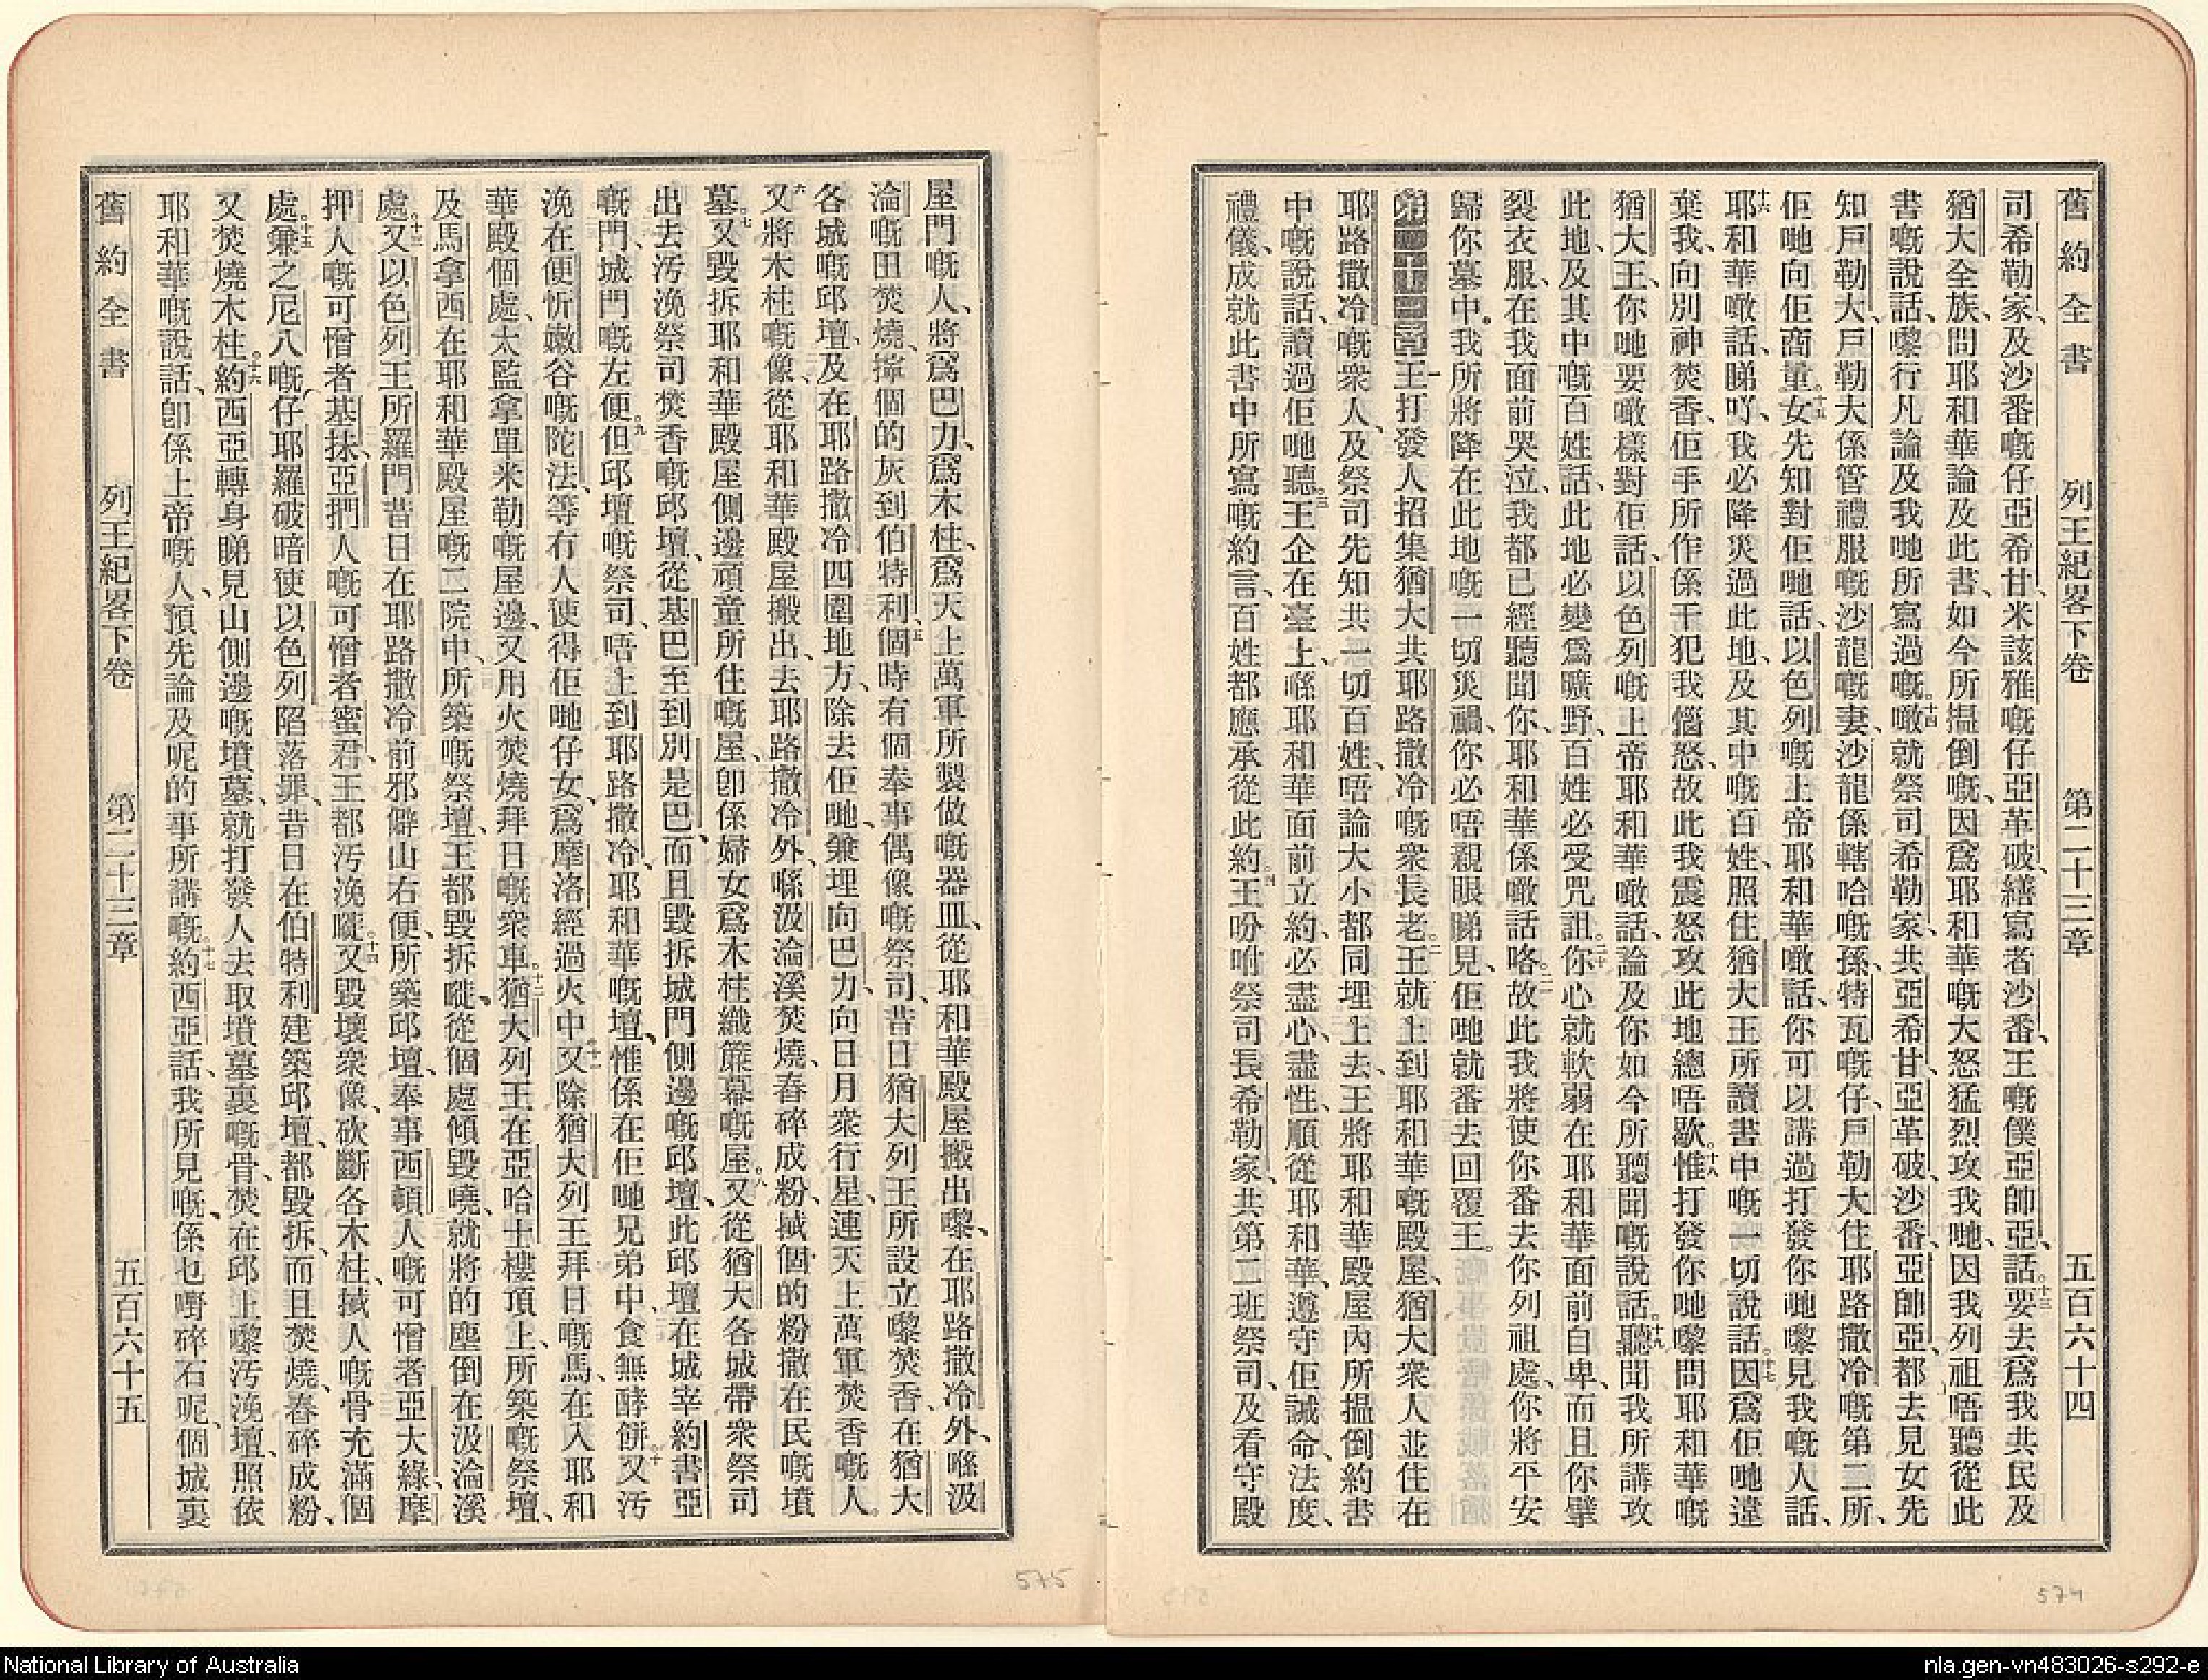 舊約全書 列王紀畧下卷 第二十三章 五百六十四
司希勒家、及沙番嘅仔亞希甘、米該雅嘅仔亞革破、繕寫者沙番、王嘅僕亞帥亞、話、十三要去爲我共民及
猶大全族、問耶和華論及此書、如今所揾倒嘅、因爲耶和華嘅大怒猛烈攻我哋、因我列祖唔聽從此
書嘅說話、嚟行凡論及我哋所寫過嘅。十四噉就祭司希勒家、共亞希甘、亞革破、沙番、亞帥亞、都去見女先
知戶勒大、戶勒大係管禮服嘅沙龍嘅妻、沙龍係轄哈嘅孫、特瓦嘅仔、戶勒大住耶路撒冷嘅第二所、
佢哋向佢商量。十五女先知對佢哋話、以色列嘅上帝耶和華噉話、你可以講過打發你哋嚟見我嘅人話、
十六耶和華噉話、睇吖、我必降災過此地、及其中嘅百姓、照住猶大王所讀書中嘅一切說話。十七因爲佢哋違
棄我、向別神焚香、佢手所作係干犯我惱怒、故此我震怒攻此地總唔歇。十八惟打發你哋嚟問耶和華嘅
猶大王、你哋要噉樣對佢話、以色列嘅上帝耶和華噉話、論及你如今所聽聞嘅說話。十九聽聞我所講攻
此地、及其中嘅百姓話、此地必變爲曠野、百姓必受咒詛。二十你心就軟弱在耶和華面前自卑、而且你擘
裂衣服、在我面前哭泣、我都已經聽聞你、耶和華係噉話咯。故此我將使你番去你列祖處、你將平安
歸你墓中。我所將降在此地嘅一切災禍、你必唔親眼睇見、佢哋就番去回覆王。
第二十三章一王打發人招集猶大共耶路撒冷嘅衆長老。二王就上到耶和華嘅殿屋、猶大衆人並住在
耶路撒冷嘅衆人、及祭司先知共一切百姓、唔論大小都同埋上去、王將耶和華殿屋內所揾倒約書
中嘅說話、讀過佢哋聽。三王企在臺上、喺耶和華面前立約、必盡心、盡性、順從耶和華、遵守佢誡命、法度、
禮儀、成就此書中所寫嘅約言、百姓都應承從此約。四王吩咐祭司長希勒家、共第二班祭司、及看守殿
屋門嘅人、將爲巴力、爲木柱、爲天上萬軍所製做嘅器皿、從耶和華殿屋搬出嚟、在耶路撒冷外、喺汲
淪嘅田焚燒、擰個的灰到伯特利。五個時有個奉事偶像嘅祭司、昔日猶大列王所設立嚟焚香、在猶大
各城嘅邱壇、及在耶路撒冷四圍地方、除去佢哋、兼埋向巴力、向日月衆行星、連天上萬軍焚香嘅人。
六又將木柱嘅像、從耶和華殿屋搬出、去耶路撒冷外、喺汲淪溪焚燒、舂碎成粉、掞個的粉撒在民嘅墳
墓。七又毀拆耶和華殿屋側邊頑童所住嘅屋、卽係婦女爲木柱織簾幕嘅屋。八又從猶大各城帶衆祭司
出去、汚浼祭司焚香嘅邱壇、從基巴至到別是巴、而且毀拆城門側邊嘅邱壇、此邱壇在城宰約書亞
嘅門、城門嘅左便。九但邱壇嘅祭司、唔上到耶路撒冷、耶和華嘅壇、惟係在佢哋兄弟中、食無酵餅。十又汚
浼在便忻嫩谷嘅陀法、等冇人使得佢哋仔女、爲摩洛經過火中。十一又除猶大列王拜日嘅馬、在入耶和
華殿個處、太監拿單米勒嘅屋邊、又用火焚燒拜日嘅衆車。十二猶大列王在亞哈士樓頂上、所築嘅祭壇、
及馬拿西在耶和華殿屋嘅二院中、所築嘅祭壇、王都毀拆嘥、從個處傾毀嘵、就將的塵倒在汲淪溪
處。十三又以色列王所羅門昔日在耶路撒冷前邪僻山右便、所築邱壇、奉事西頓人嘅可憎者亞大綠、摩
押人嘅可憎者基抹、亞捫人嘅可憎者蜜君、王都汚浼嘥。十四又毀壞衆像、砍斷各木柱、掞人嘅骨充滿個
處。十五兼之尼八嘅仔耶羅破暗使以色列陷落罪、昔日在伯特利建築邱壇、都毀拆、而且焚燒、舂碎成粉、
又焚燒木柱。十六約西亞轉身睇見山側邊嘅墳墓、就打發人去取墳墓裏嘅骨、焚在邱上嚟汚浼壇、照依
耶和華嘅說話、卽係上帝嘅人、預先論及呢的事所講嘅。十七約西亞話、我所見嘅、係乜嘢碎石呢、個城裏
舊約全書 列王紀畧下卷 第二十三章 五百六十五
575
574
National Library of Australia
nla.gen-vn483026-s292-e